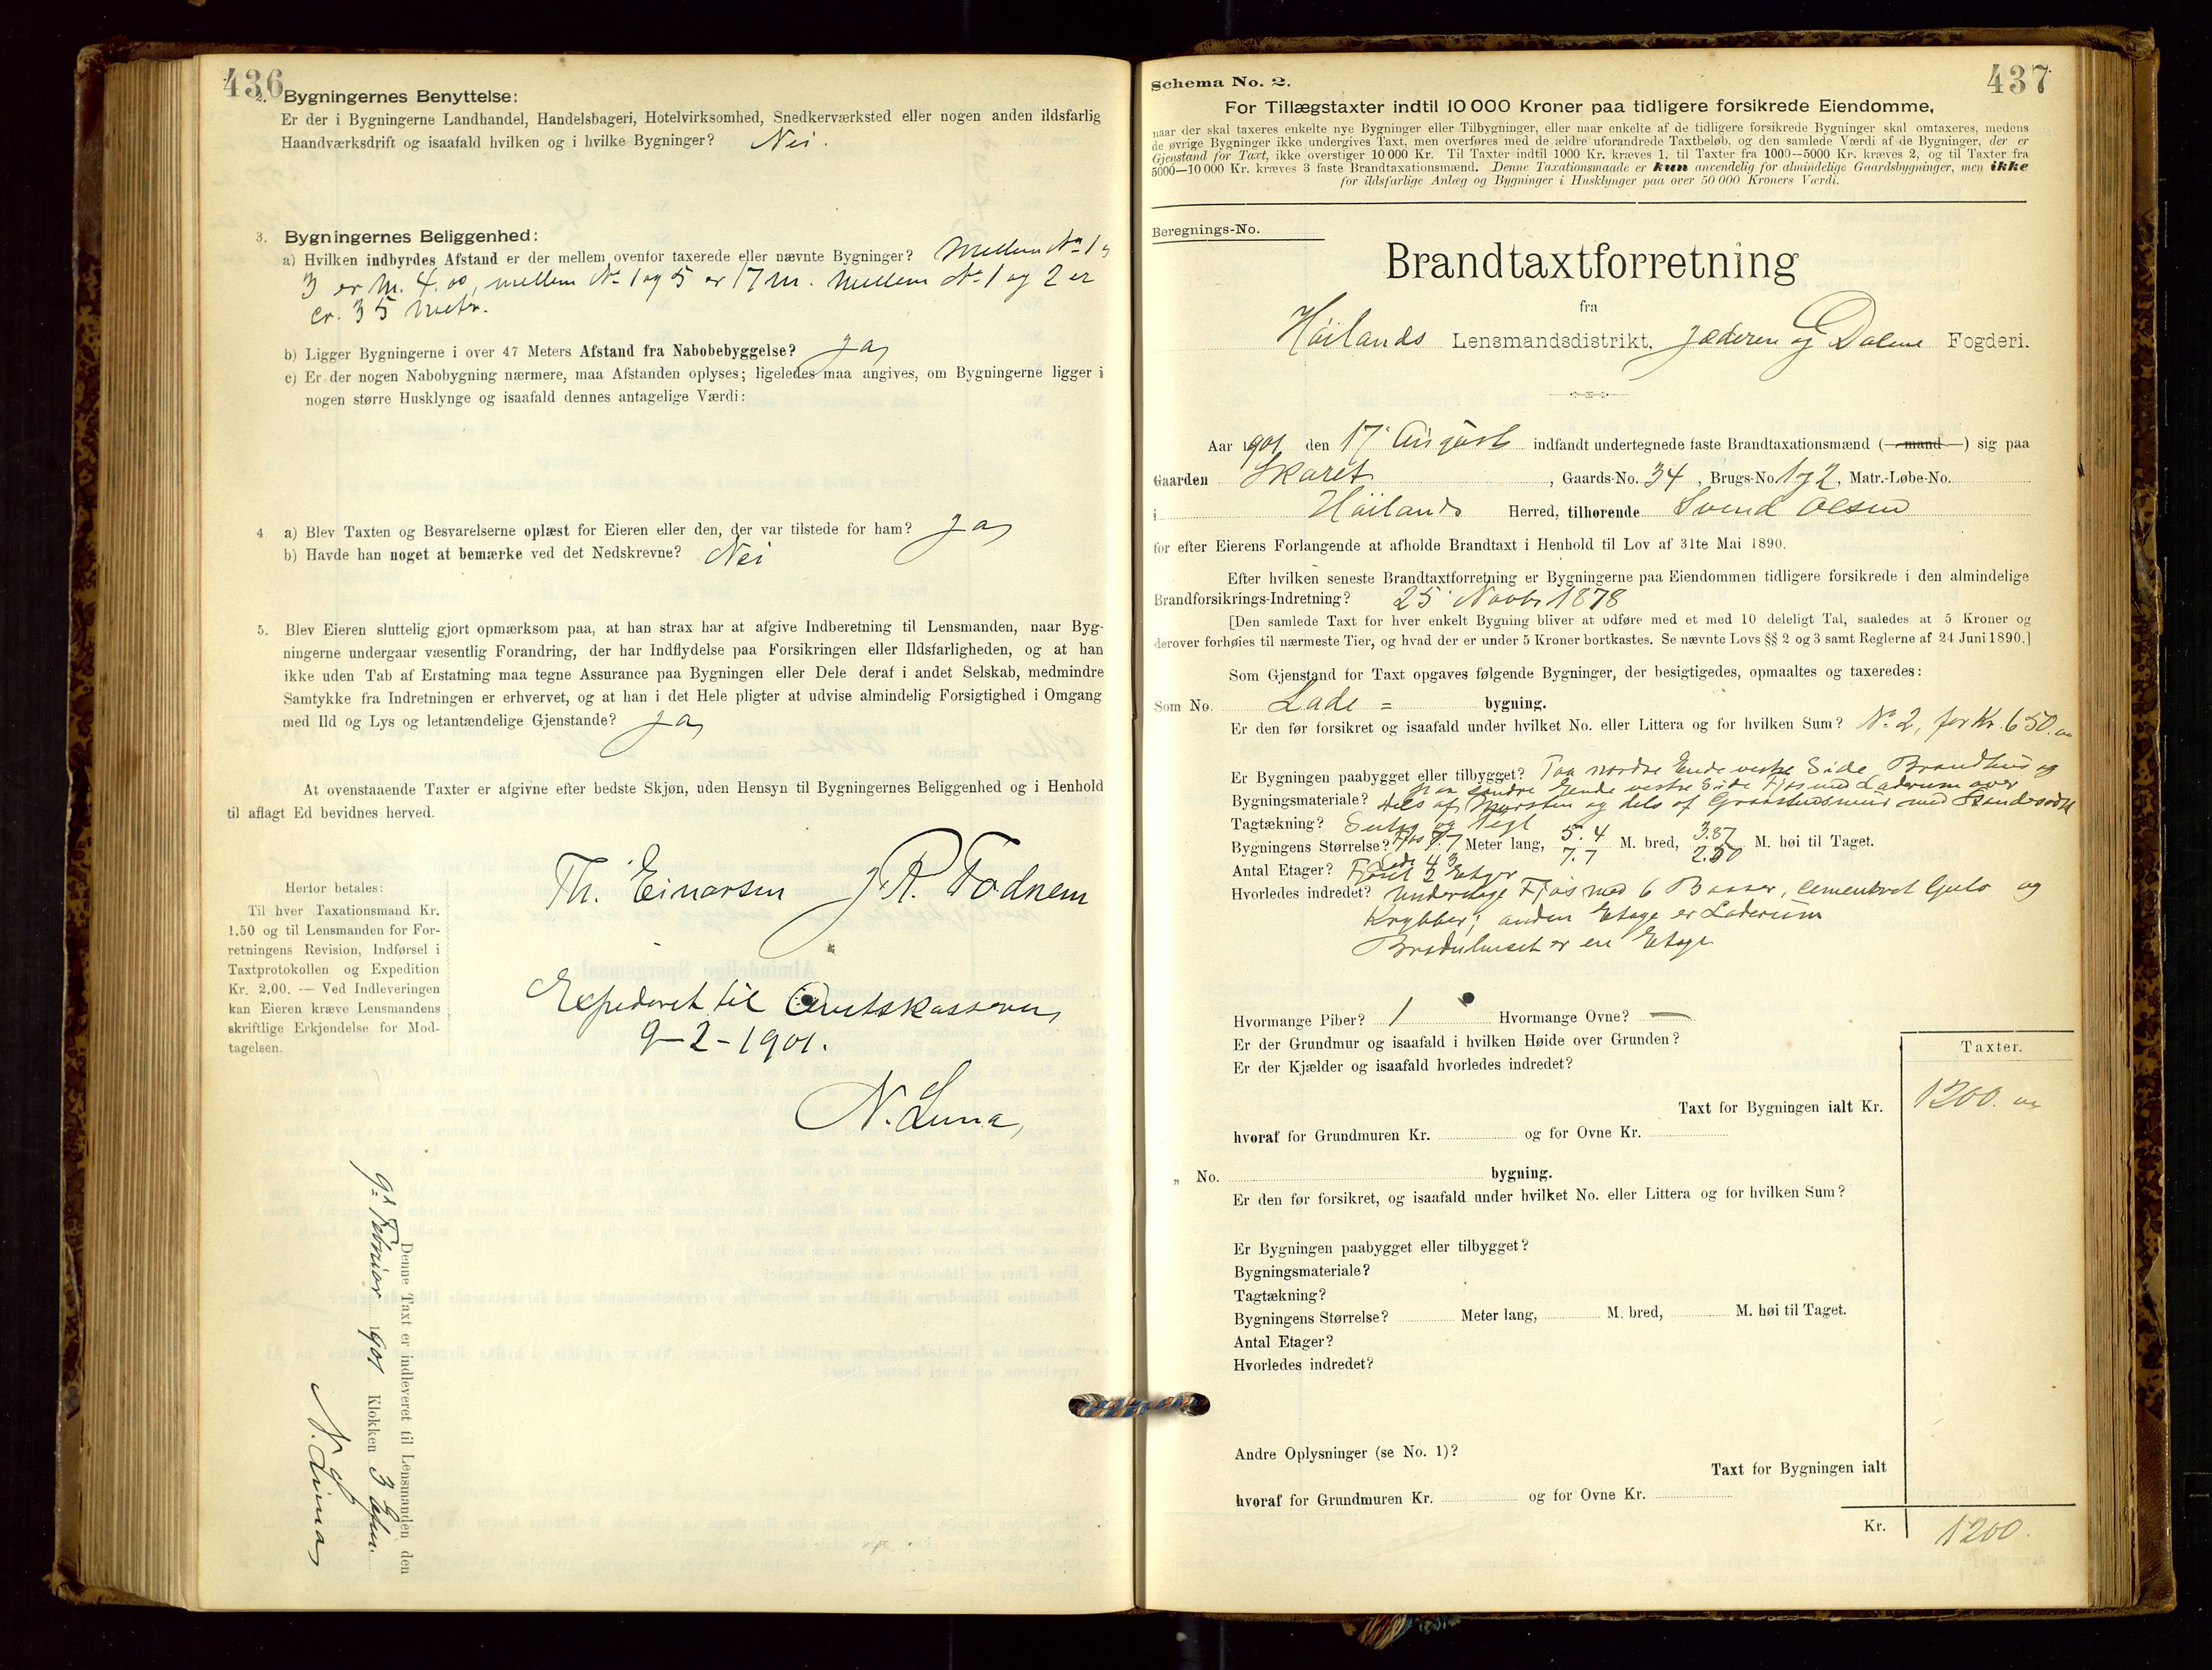 436
2. Bygningernes Benyttelse:
Er der i Bygningerne Landhandel, Handelsbageri, Hotelvirksomhed, Snedkerværksted eller nogen anden ildsfarlig
Haandværksdrift og isaafald hvilken og i hvilke Bygninger? Nei.
3. Bygningernes Beliggenhed:
a) Hvilken indbyrdes Afstand er der mellem ovenfor taxerede eller nævnte Bygninger? Mellem No 1 og
3 er M. 4.00, mellem No 1 og 5 er 17 m. Mellem No 1 og 2 er
cr. 35 Metr.
b) Ligger Bygningerne i over 47 Meters Afstand fra Nabobebyggelse? Ja
c) Er der nogen Nabobygning nærmere, maa Afstanden oplyses; ligeledes maa angives, om Bygningerne ligger i
nogen større Husklynge og isaafald dennes antagelige Værdi:
4. a) Blev Taxten og Besvarelserne oplæst for Eieren eller den, der var tilstede for ham? Ja
b) Havde han noget at bemærke ved det Nedskrevne? Nei
5. Blev Eieren sluttelig gjort opmærksom paa, at han strax har at afgive Indberetning til Lensmanden, naar Byg-
ningerne undergaar væsentlig Forandring, der har Indflydelse paa Forsikringen eller Ildsfarligheden, og at han
ikke uden Tab af Erstatning maa tegne Assurance paa Bygningen eller Dele deraf i andet Selskab, medmindre
Samtykke fra Indretningen er erhvervet, og at han i det Hele pligter at udvise almindelig Forsigtighed i Omgang
med Ild og Lys og letantændelige Gjenstande? Ja
At ovenstaaende Taxter er afgivne efter bedste Skjøn, uden Hensyn til Bygningernes Beliggenhed og i Henhold
til aflagt Ed bevidnes herved.
Th. Einarsen J. R. Todnem
Herfor betales:
Til hver Taxationsmand Kr.
1.50 og til Lensmanden for For-
retningens Revision, Indførsel i
Taxtprotokollen og Expedition
Kr. 2,00. — Ved Indleveringen
kan Eieren kræve Lensmandens
skriftlige Erkjendelse for Mod-
tagelsen.
Expederet til Amtskasseren
9-2-1901.
N. Lima
Denne Taxt er indleveret til Lensmanden den
9de Februar 1901 Klokken 3 Efm.
N. Lima
437
Schema No. 2.
For Tillægstaxter indtil 10 000 Kroner paa tidligere forsikrede Eiendomme,
naar der skal taxeres enkelte nye Bygninger eller Tilbygninger, eller naar enkelte af de tidligere forsikrede Bygninger skal omtaxeres, medens
de øvrige Bygninger ikke undergives Taxt, men overføres med de ældre uforandrede Taxtbeløb, og den samlede Værdi af de Bygninger, der er
Gjenstand for Taxt, ikke overstiger 10 000 Kr. Til Taxter indtil 1000 Kr. kræves 1, til Taxter fra 1000—5000 Kr. kræves 2, og til Taxter fra
5000—10 000 Kr. kræves 3 faste Brandtaxationsmænd. Denne Taxationsmaade er kun anvendelig for almindelige Gaardsbygninger, men ikke
for ildsfarlige Anlæg og Bygninger i Husklynger paa over 50 000 Kroners Værdi.
Beregnings-No.
Brandtaxtforretning
fra
Høilands Lensmandsdistrikt, Jæderen og Dalene Fogderi.
Aar 1901 den 17 August indfandt undertegnede faste Brandtaxationsmænd (—mand—) sig paa
Gaarden Skaret, Gaards-No. 34, Brugs-No. 1 og 2, Matr.-Løbe-No.
i Høilands Herred, tilhørende Svend Olsen
for efter Eierens Forlangende at afholde Brandtaxt i Henhold til Lov af 31te Mai 1890.
Efter hvilken seneste Brandtaxtforretning er Bygningerne paa Eiendommen tidligere forsikrede i den almindelige
Brandforsikrings-Indretning? 25 Novbr 1878
[Den samlede Taxt for hver enkelt Bygning bliver at udføre med et med 10 deleligt Tal, saaledes at 5 Kroner og
derover forhøies til nærmeste Tier, og hvad der er under 5 Kroner bortkastes. Se nævnte Lovs §§ 2 og 3 samt Reglerne af 24 Juni 1890.]
Som Gjenstand for Taxt opgaves følgende Bygninger, der besigtigedes, opmaaltes og taxeredes:
Som No. Lade = bygning.
Er den før forsikret og isaafald under hvilket No. eller Littera og for hvilken Sum? No. 2, for Kr. 650.
Er Bygningen paabygget eller tilbygget? Paa nordre Ende vestre Side Brandhus og
paa søndre Ende vestre Side Fjøs med Laderum over
Bygningsmateriale? dels af Mursten og dels af Graastensmur med
Tagtækning? og Tegl
Bygningens Størrelse? Fjøs 7.7 Meter lang, 5.4 M. bred, 3.87 M. høi til Taget.
4.3 7.7 2.50
Antal Etager? Fjøset 2 Etger
Hvorledes indredet? underetage Fjøs med 6 Baaser, cementeret Gulv og
Krybber; anden Etage er Laderum
er en Etage
Hvormange Piber? 1 Hvormange Ovne? —
Er der Grundmur og isaafald i hvilken Høide over Grunden?
Er der Kjælder og isaafald hvorledes indredet?
Taxter.
Taxt for Bygningen ialt Kr. 1200.
hvoraf for Grundmuren Kr. og for Ovne Kr.
„ No. bygning.
Er den før forsikret, og isaafald under hvilket No. eller Littera og for hvilken Sum?
Er Bygningen paabygget eller tilbygget?
Bygningsmateriale?
Tagtækning?
Bygningens Størrelse? Meter lang, M. bred, M. høi til Taget.
Antal Etager?
Hvorledes indredet?
Andre Oplysninger (se No. 1)?
Taxt for Bygningen ialt
hvoraf for Grundmuren Kr. og for Ovne Kr.
Kr. 1200.